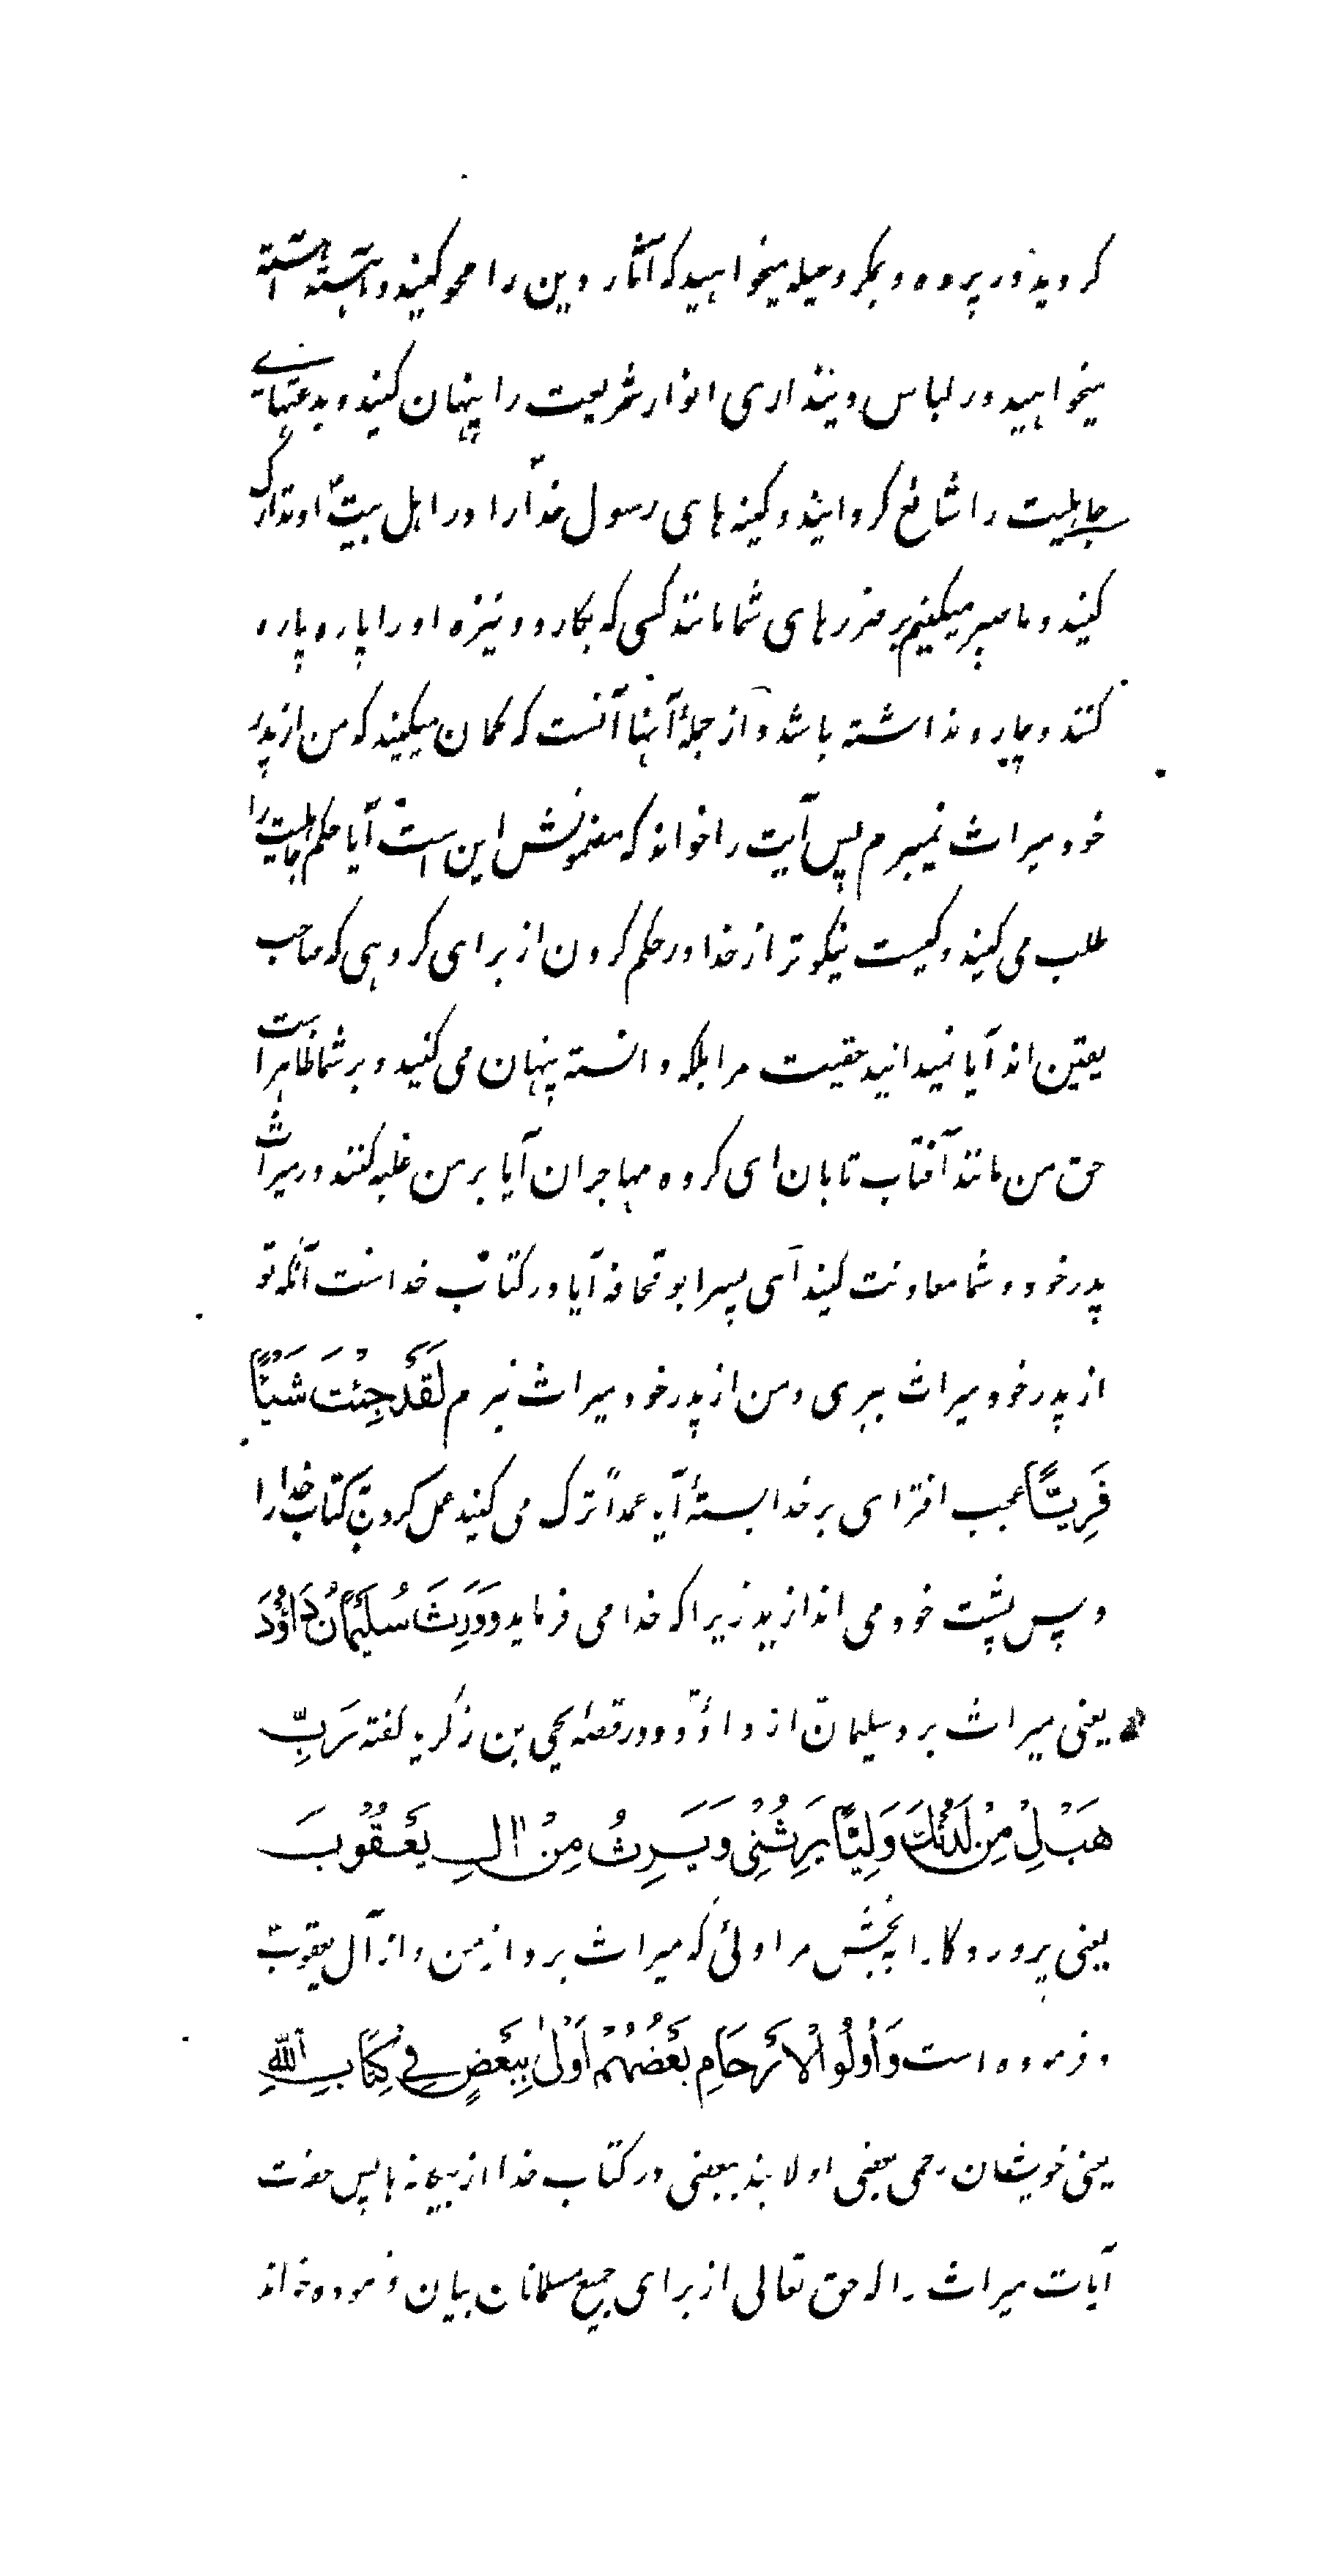 کردید در پرده و بمکر و حیله میخواهید که آثار دین را محو کنید و آهسته آهسته
میخواهید در لباس دینداری انوار شریعت را پنهان کنید و بدعتهای
جاهلیت را شائع گردانید و کینه های رسول خدا را در اهل بیت او تدارک
کنید و ما صبر میکنیم بر ضررهای شما مانند کسی که بکارد و نیزه او را پاره پاره
کنند و چاره نداشته باشد و از جملۀ آنها آنست که گمان میکنید که من از پدر
خود میراث نمیبرم پس آیت را خواند که مضمونش این است آیا حکم جاهلیت را
طلب می کنید و کیست نیکوتر از خدا در حکم کردن از برای گروهی که صاحب
یقین اند آیا نمیدانید حقیت مرا بلکه دانسته پنهان می کنید و بر شما ظاهر است
حق من مانند آفتاب تابان ای گروه مهاجران آیا بر من غلبه کنند در میراث
پدر خود و شما معاونت کنید ای پسر ابو قحافه آیا در کتاب خداست آنکه تو
از پدر خود میراث ببری و من از پدر خود میراث نبرم لَقَدْ جِئْتَ شَيْئًا
فَرِيًّا عجب افترای بر خدا بستۀ آیا عمداً ترک می کنید عمل کردن بکتاب خدا را
و پس پشت خود می اندازید زیرا که خدا می فرماید وَوَرِثَ سُلَيْمَانُ دَاوُدَ
یعنی میراث برد سلیمان از داؤد و در قصۀ یحیی بن زکریا گفته رَبِّ
هَبْ لِيْ مِنْ لَدُنْكَ وَلِيًّا يَرِثُنِيْ وَيَرِثُ مِنْ اٰلِ يَعْقُوْبَ
یعنی پروردگارا ببخش مرا ولئی که میراث برد از من و از آل یعقوب
و فرموده است وَأُولُوا الْاَرْحَامِ بَعْضُهُمْ اَوْلٰى بِبَعْضٍ فِيْ كِتَابِ اللّٰهِ
یعنی خویشان رحمی بعضی اولا یند ببعضی در کتاب خدا از بیگانه ها پس حضرت
آیات میراث را که حق تعالی از برای جمیع مسلمانان بیان فرموده خواند